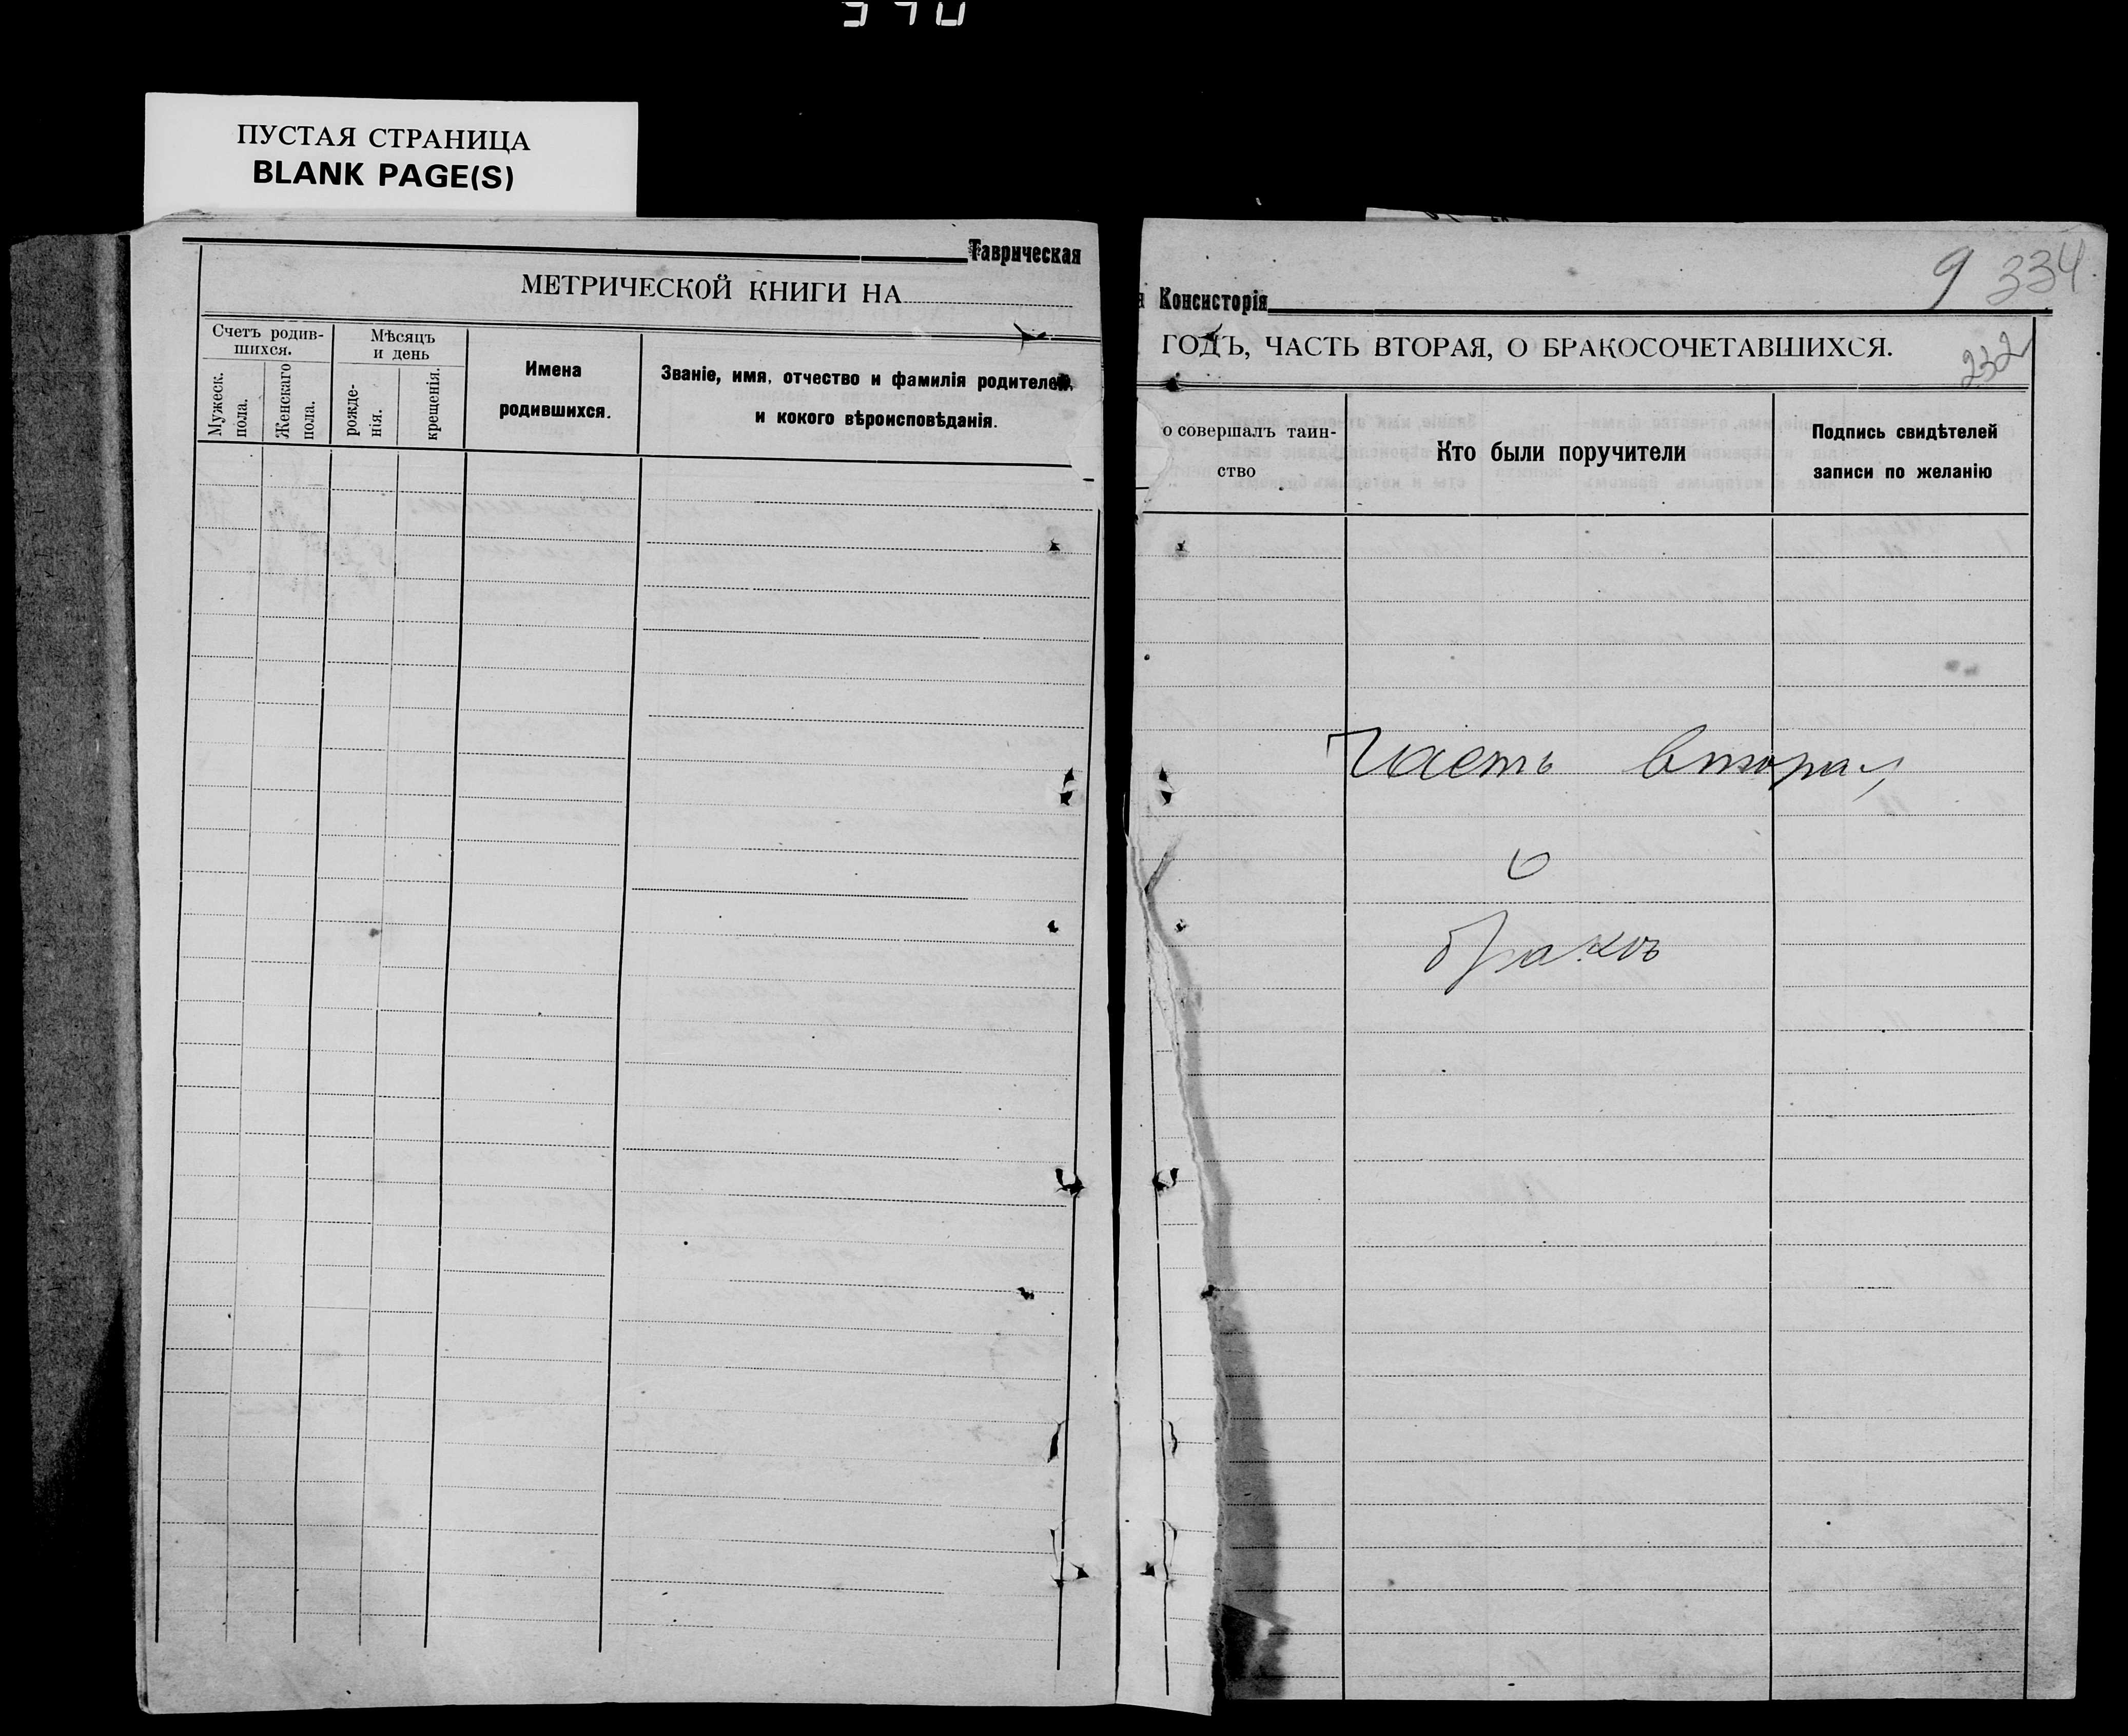 ПУСТАЯ СТРАНИЦА
BLANK PAGE(S)
Таврическая
МЕТРИЧЕСКОЙ КНИГИ НА
Счетъ родив-
шихся.
Мѣсяцъ
и день
Мужеск.
пола.
Женскаго
пола.
рожде-
нія.
крещенія.
Имена
родившихся.
Званіе, имя, отчество и фамилія родителей,
и кокого вѣроисповѣданія.
9 334
Консисторія
ГОДЪ, ЧАСТЬ ВТОРАЯ, О БРАКОСОЧЕТАВШИХСЯ.
232
о совершалъ таин-
ство
Кто были поручители
Подпись свидѣтелей
записи по желанію
Часть вторая
о
бракѣ